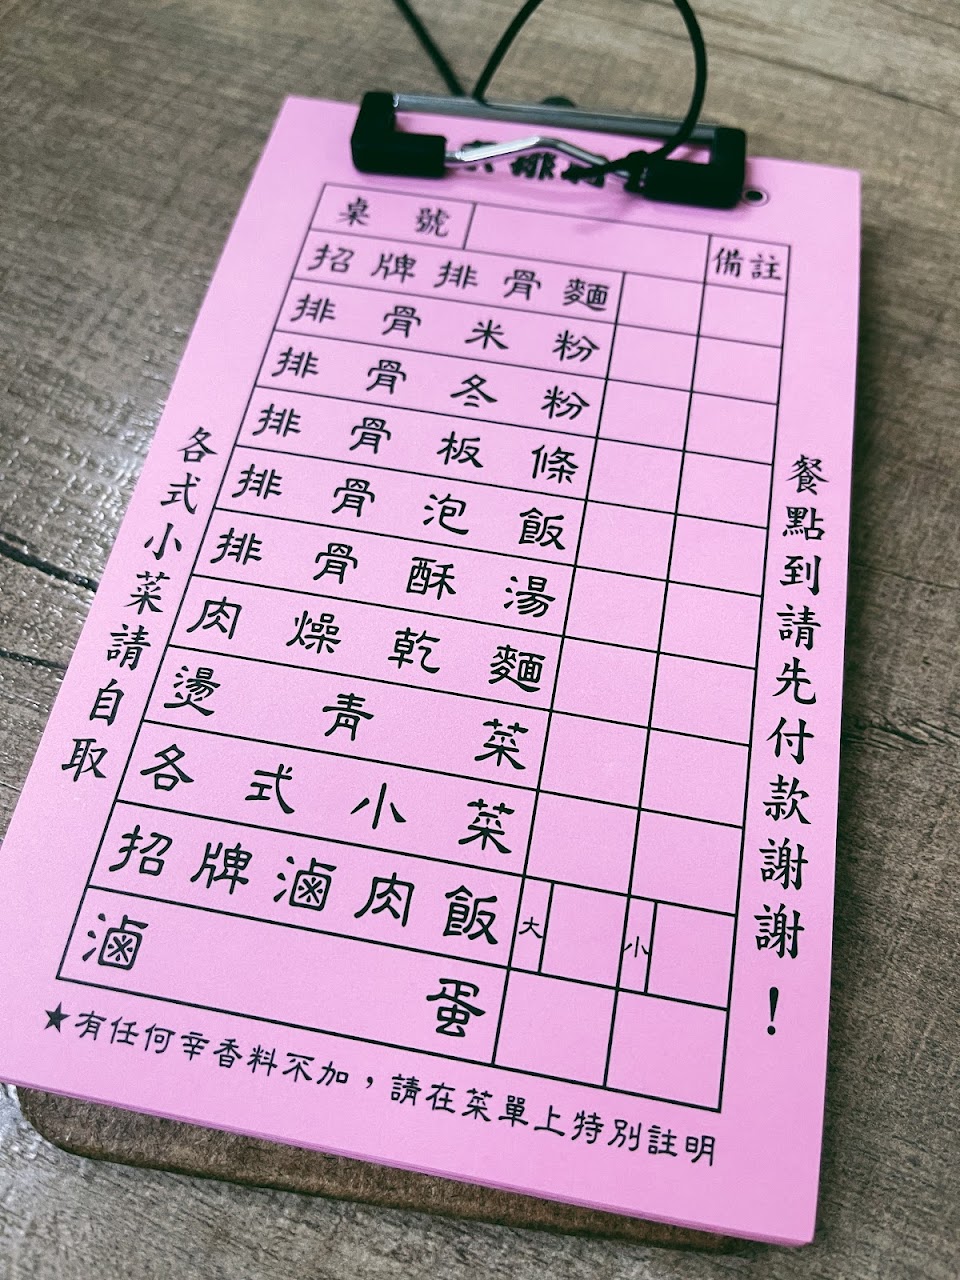 桌號
備註
招牌排骨麵
排骨米粉
排骨冬粉
排骨板條
排骨泡飯
排骨酥湯
肉燥乾麵
燙青菜
各式小菜
招牌滷肉飯 大 小
滷蛋
★有任何辛香料不加，請在菜單上特別註明
各式小菜請自取
餐點到請先付款謝謝！